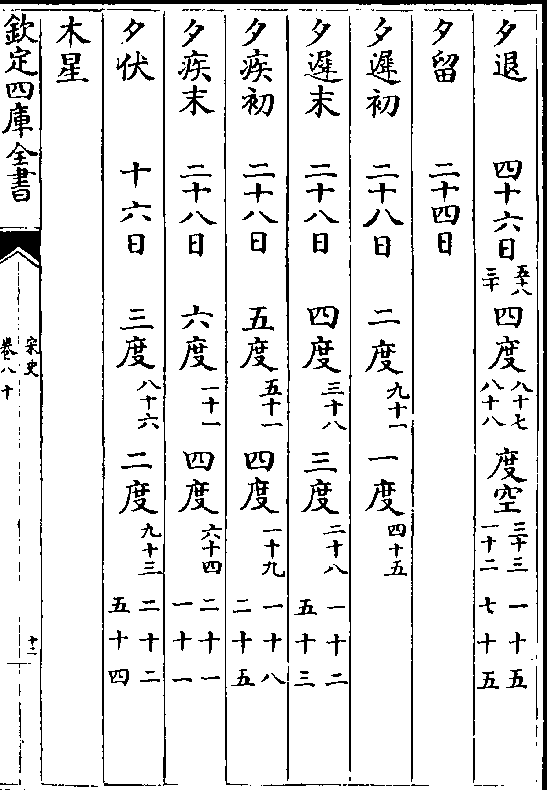 夕退 四十六日 五十八 三十 四度 八十七 八十八 度空 三十三 一十二 一十五 七十五
夕留 二十四日
夕遲初 二十八日 二度 九十一 一度 四十五
夕遲末 二十八日 四度 三十八 三度 二十八 一十二 五十三
夕疾初 二十八日 五度 五十一 四度 一十九 一十八 二十五
夕疾末 二十八日 六度 一十一 四度 六十四 二十一 一十一
夕伏 十六日 三度 八十六 二度 九十三 二十二 五十四
木星
欽定四庫全書
宋史
卷八十
十二